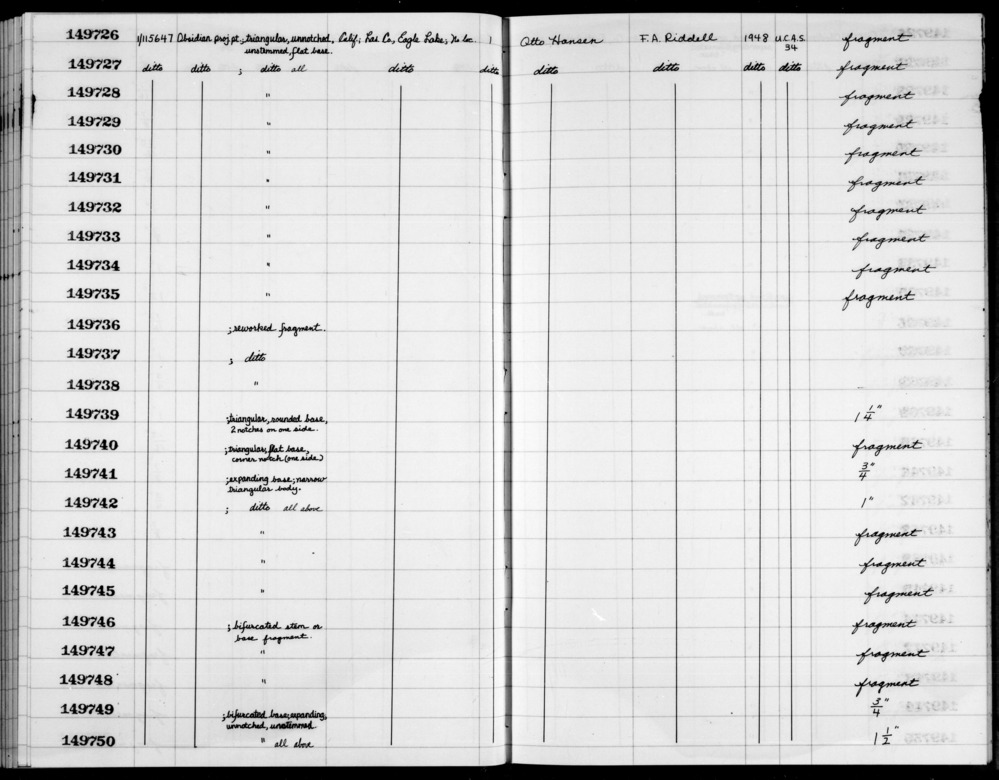 149726 1/115647 Obsidian proj pt.; triangular, unnotched, Calif; Las Co, Eagle Lake; No loc. 1 Otto Hansen F. A. Riddell 1948 U.C.A.S. fragment
unstemmed, flat base. 34
149727 ditto ditto ; ditto all ditto ditto ditto ditto ditto ditto fragment
149728 " fragment
149729 " fragment
149730 " fragment
149731 " fragment
149732 " fragment
149733 " fragment
149734 " fragment
149735 " fragment
149736 ; reworked fragment.
149737 ; ditto
149738 "
149739 ; triangular, rounded base, 1 1/4"
2 notches on one side.
149740 ; triangular, flat base, fragment
corner notch (one side)
149741 ; expanding base; narrow 3/4"
triangular body.
149742 ; ditto all above 1"
149743 " fragment
149744 " fragment
149745 " fragment
149746 ; bifurcated stem or fragment
base fragment.
149747 " fragment
149748 " fragment
149749 ; bifurcated base; expanding, 3/4"
unnotched, unstemmed
149750 " all above 1 1/2"